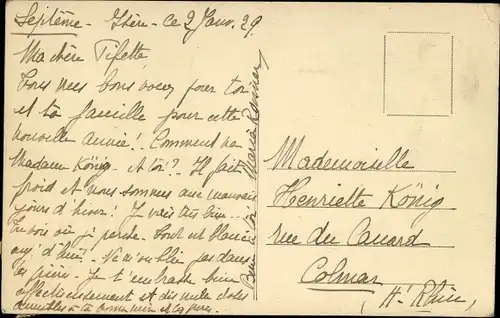 Septème - Isère - ce 2 Janv. 29.
Ma chère Fifette
Tous mes bons voeux pour toi
et ta famille pour cette
nouvelle année! Comment va
Madame König. Et toi? Il fait
froid et nous sommes aux mauvais
jours d'hiver! Je vais très bien..
Tu vois où je perche. Tout est blanc
auj' d'hui. Ne m'oublie pas dans
tes prières. Je t'embrasse bien
affectueusement et dis mille choses
aimables à ta
Bien à toi Maria
Mademoiselle
Henriette König
rue du Canard
Colmar
(Ht Rhin)